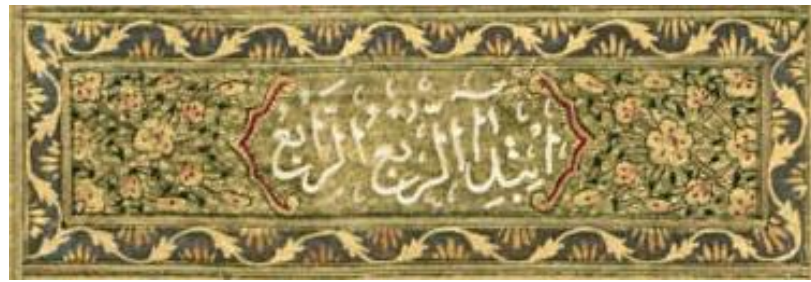 ابْتِدَآءُ الرُّبْعِ الرَّابِعِ